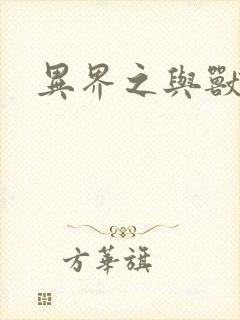 異界之與獸
方華旗